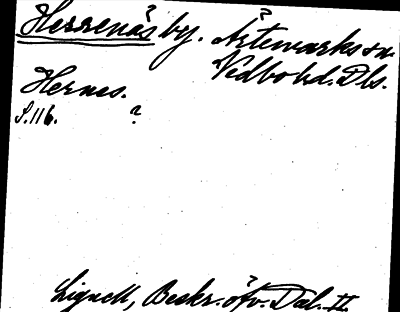 Herrenäs by. Ärtemarks sn.
Vedbo hd. Dls.
Hernes.
S. 116. ?
Lignell, Beskr. öfv. Dal. II.